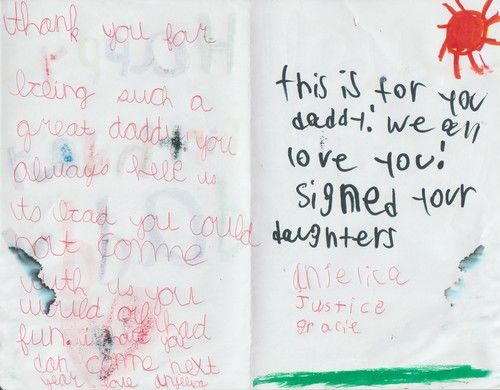 thank you for
being such a
great daddy you
always help us
its brad you could
not come
with us you
would of had
fun.
can come next
year love anjelica
this is for you
daddy! we all
love you!
signed your
daughters
anjelica
Justice
gracie